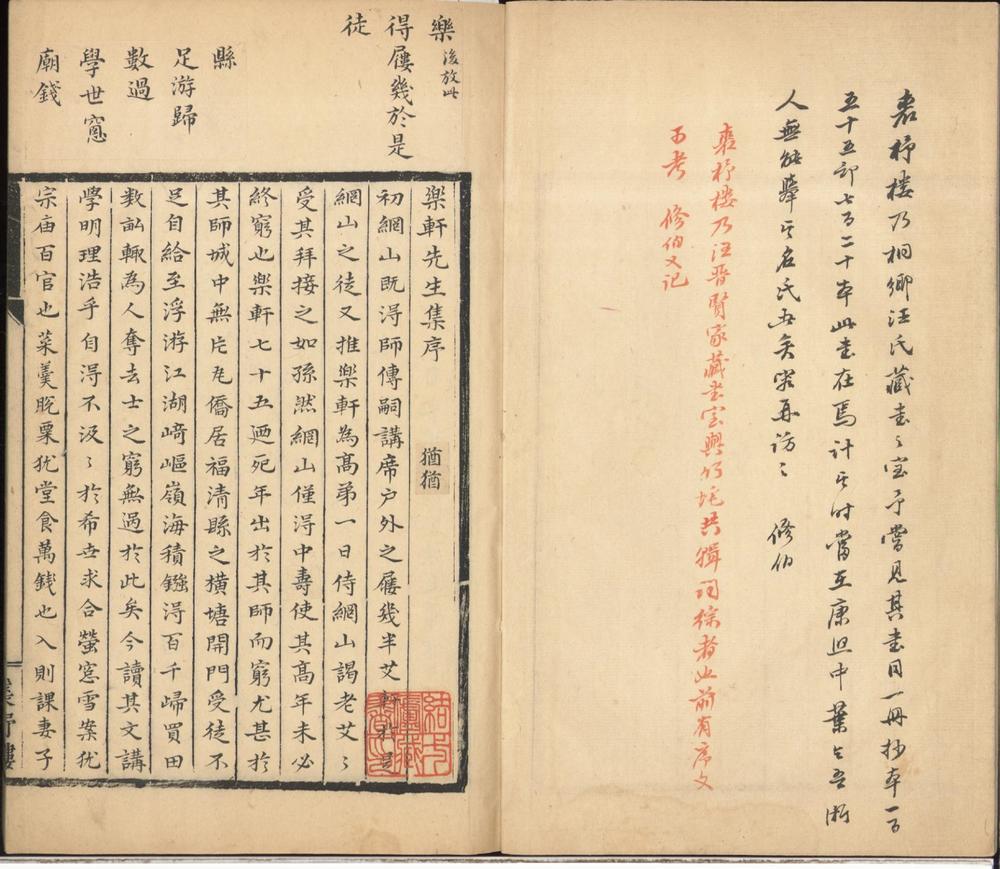 裘杼樓乃桐鄉汪氏藏書之室予嘗見其書目一冊抄本一百
五十五部七百二十本此書在焉計其時當在康熙中葉今吾浙
人無能舉其名氏者矣容再訪之　修伯
裘杼樓乃汪晉賢家藏書室與竹垞共輯詞綜者也前有序文
可考　修伯又记
樂　後放此
得屨幾於是
徒
縣
足游歸
數過
學世窻
廟錢
樂軒先生集序
猶猶
初網山既淂師傳嗣講席户外之屨幾半艾軒
網山之徒又推樂軒為髙弟一日侍網山謁老艾〻
受其拜接之如孫然網山僅淂中壽使其髙年未必
終窮也樂軒七十五廼死年出於其師而窮尤甚於
其師城中無片瓦僑居福清縣之橫塘開門受徒不
足自給至浮游江湖﨑嶇嶺海積鏹淂百千歸買田
数畝輙為人奪去士之窮無過於此矣今讀其文講
學明理浩乎自得不汲〻於希世求合螢窓雪案犹
宗庙百官也菜羮脫粟犹堂食萬錢也入則課妻子
裘杼樓